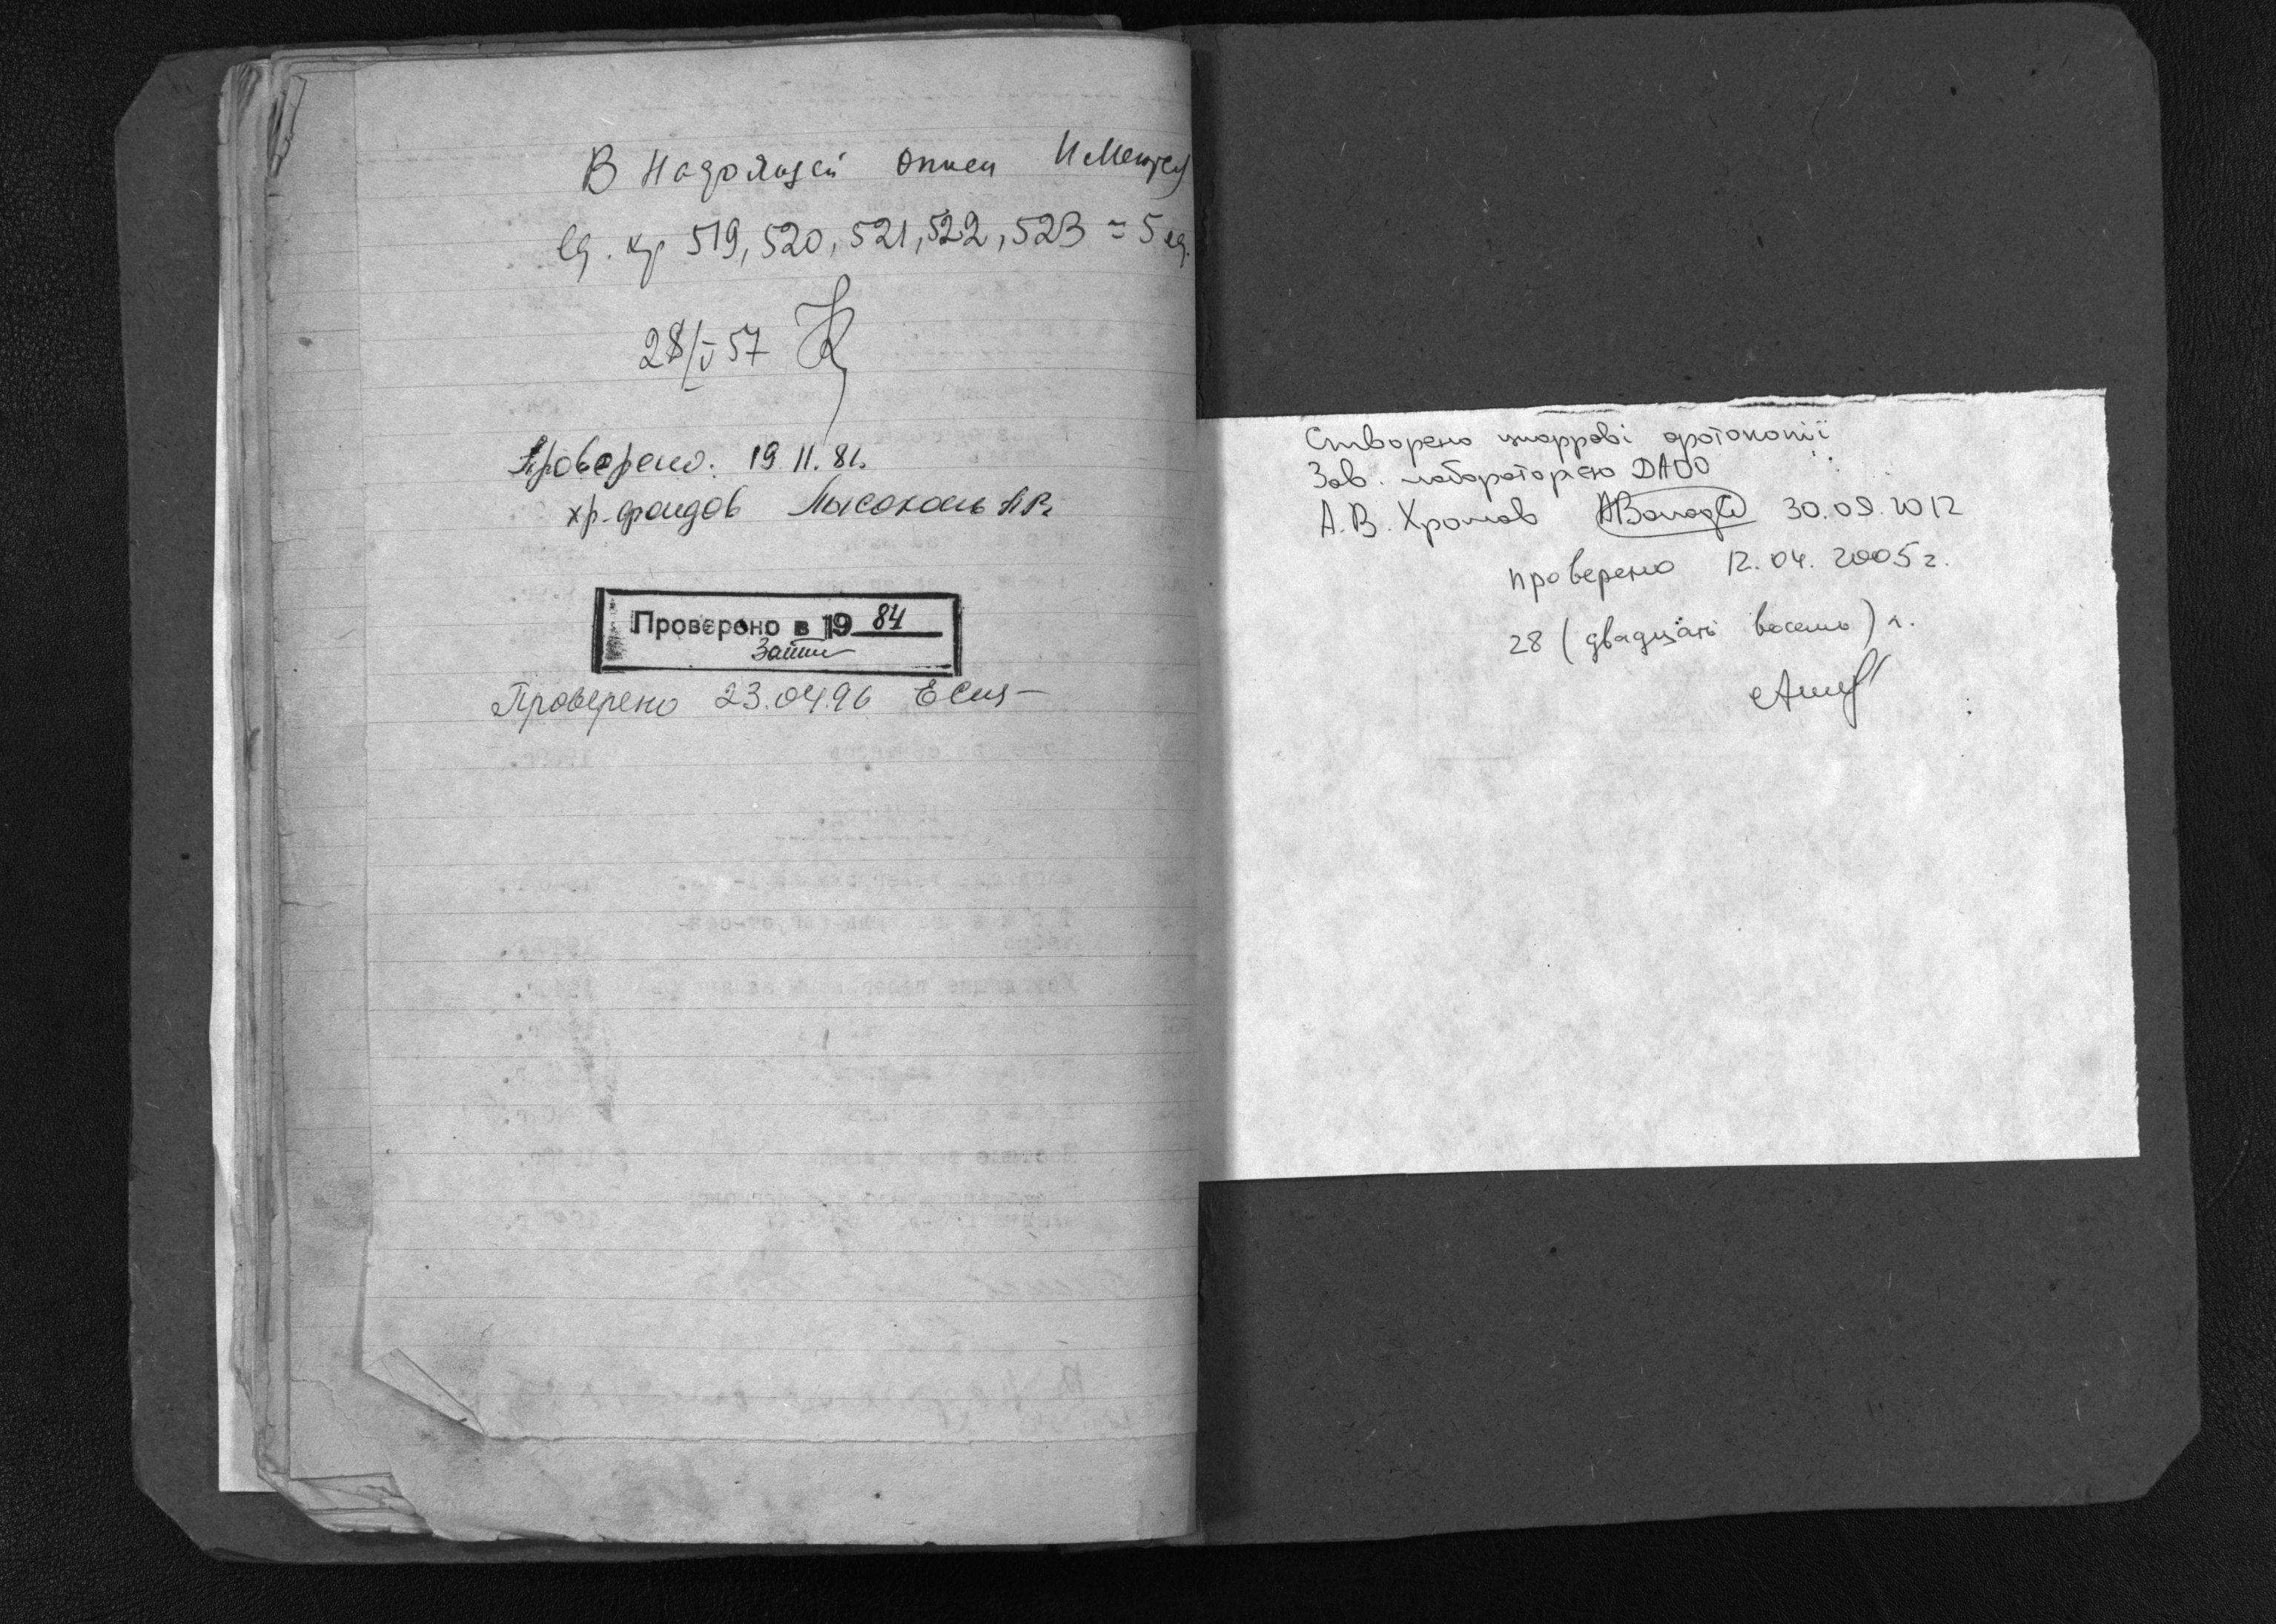 В настоящей описи имеются
ед. хр 519, 520, 521, 522, 523 = 5 ед.
28/V 57
Проверено. 19.11.81.
хр. фондов Лысоконь
Проверено в 1984
Проверено 23.04.96
Створено цифрові фотокопії
Зав. лабораторією ДАОО
А.В. Хромов 30.09.2012
проверено 12.04.2005 г.
28 (двадцать восемь) л.